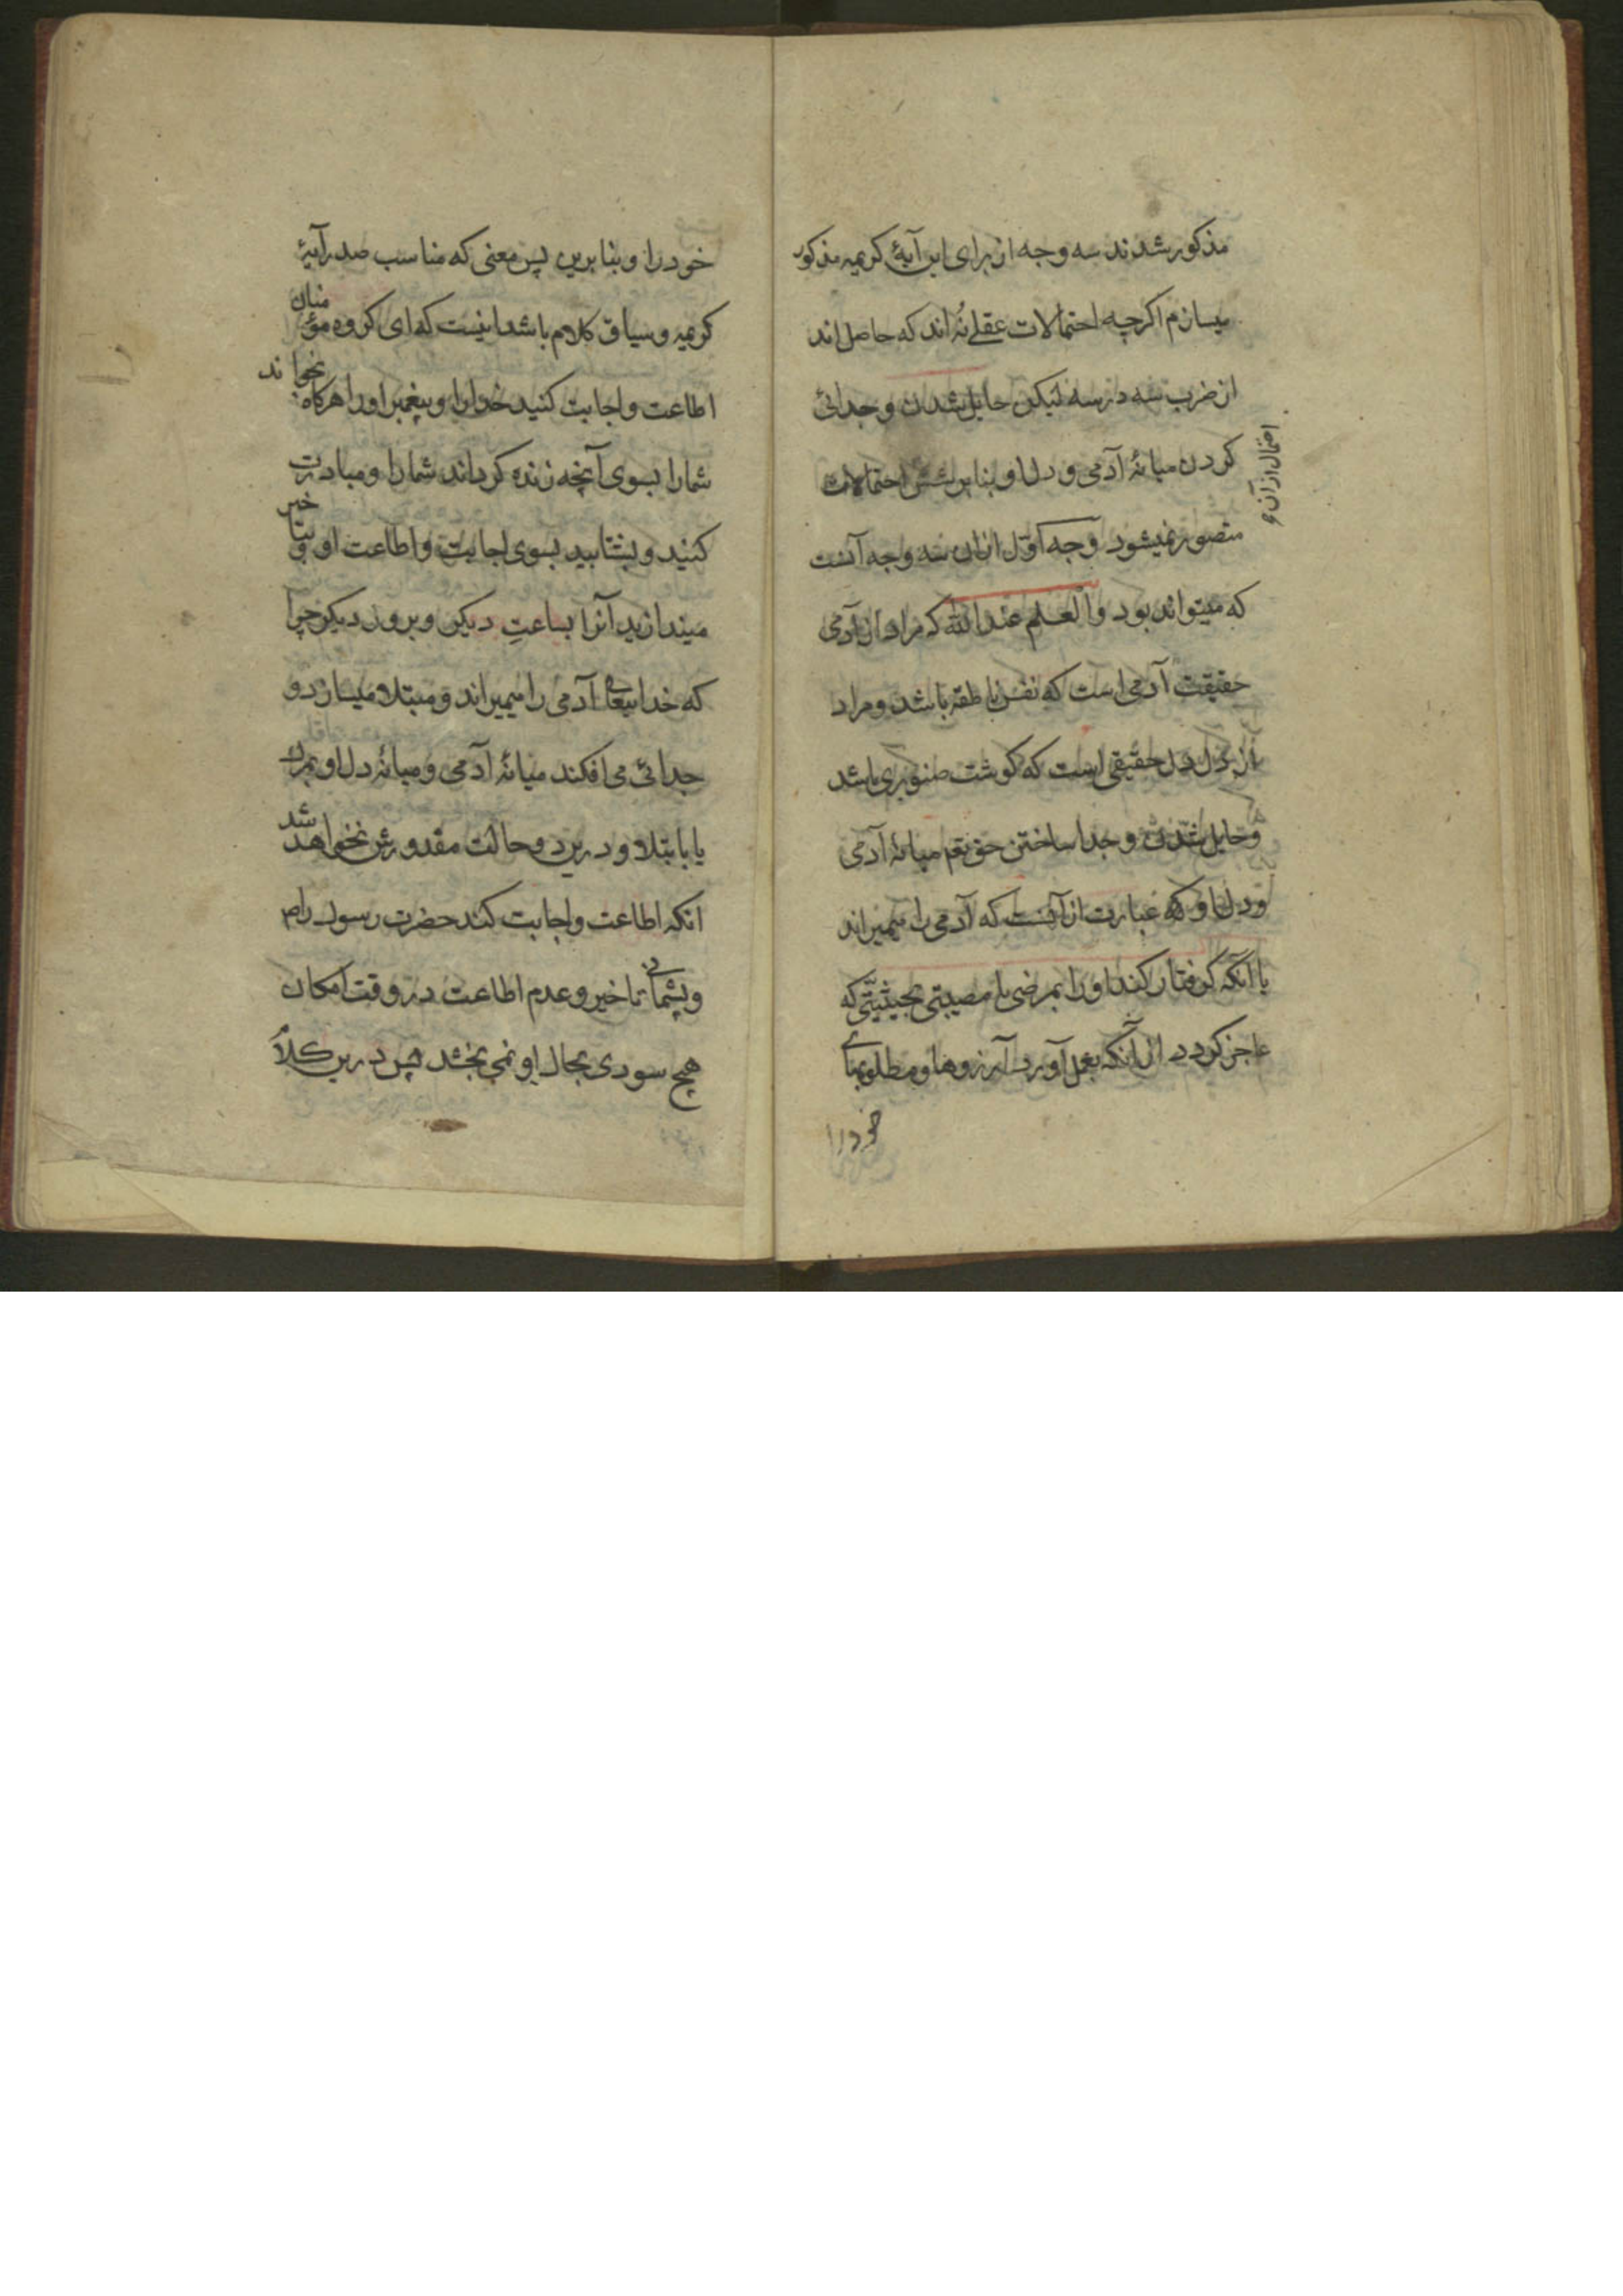 مذکور شدند سه وجه از برای این آیهٔ کریمه مذکور
میسازم اکرچه احتمالات عقلی نُه اند که حاصل اند
از ضرب سه در سه لیکن حایل شدن و جدائی
کردن میانهٔ آدمی و دل او بنابر شش احتمالات
احتمال از آن و
متصور نمیشود وجه اول ازان سه وجه آنست
که میتواند بود والعلم عند الله که مراد از آدمی
حقیقت آدمی است که نفس ناطقه باشد و مراد
از دل دل حقیقی است که کوشت صنوبری باشد
و حایل شدن و جدا ساختن حق تعم میانهٔ آدمی
و دل او که عبارت از آنست که آدمی را میمیراند
یا آنکه کرفتار کند او را بمرضی یا مصیبتی بحیثیتی که
عاجز کردد از آنکه بعمل آورد آرزوها و مطلوبهای
خود را
خود را و بنابرین پس معنی که مناسب صدر آیهٔ
کریمه و سیاق کلام باشد اینست که ای کروه مؤمنان
اطاعت و اجابت کنید خدا را و پیغمبر او را هرکاه بخواند
شما را بسوی آنچه زنده کرداند شما را و مبادرت
کنید و بشتابید بسوی اجابت و اطاعت او و بتاخیر
میندازید آنرا بساعتِ دیکر و بروز دیکر چرا
که خدایتعالی آدمی را میمیراند و مبتلا میسازد و
جدائی می افکند میانهٔ آدمی و میانهٔ دل او بمرك
یا بابتلا و درین دو حالت مقدورش نخواهد شد
انکه اطاعت و اجابت کند حضرت رسول را ص
و پشمانی تاخیر و عدم اطاعت در وقت امکان
هیچ سودی بحال او نمی بخشد پس درین کلام